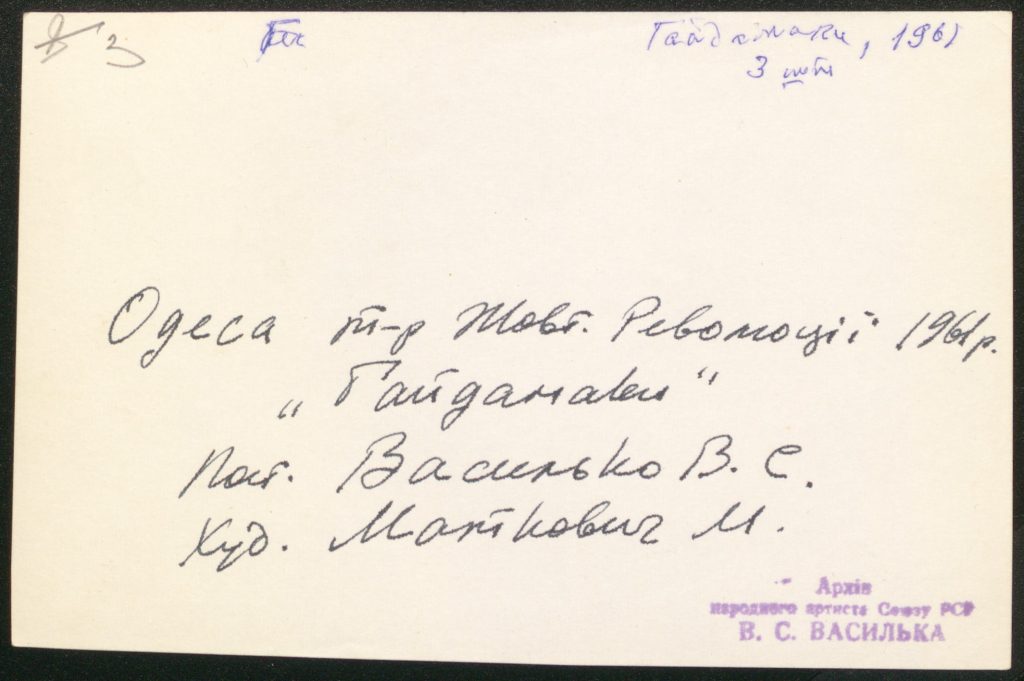 3
Гайдамаки, 1961
3 шт
Одеса т-р Жовт. Революції 1961 р.
„Гайдамаки"
Пост. Василько В. С.
Худ. Маткович М.
Архів
народного артиста Союзу РСР
В. С. ВАСИЛЬКА